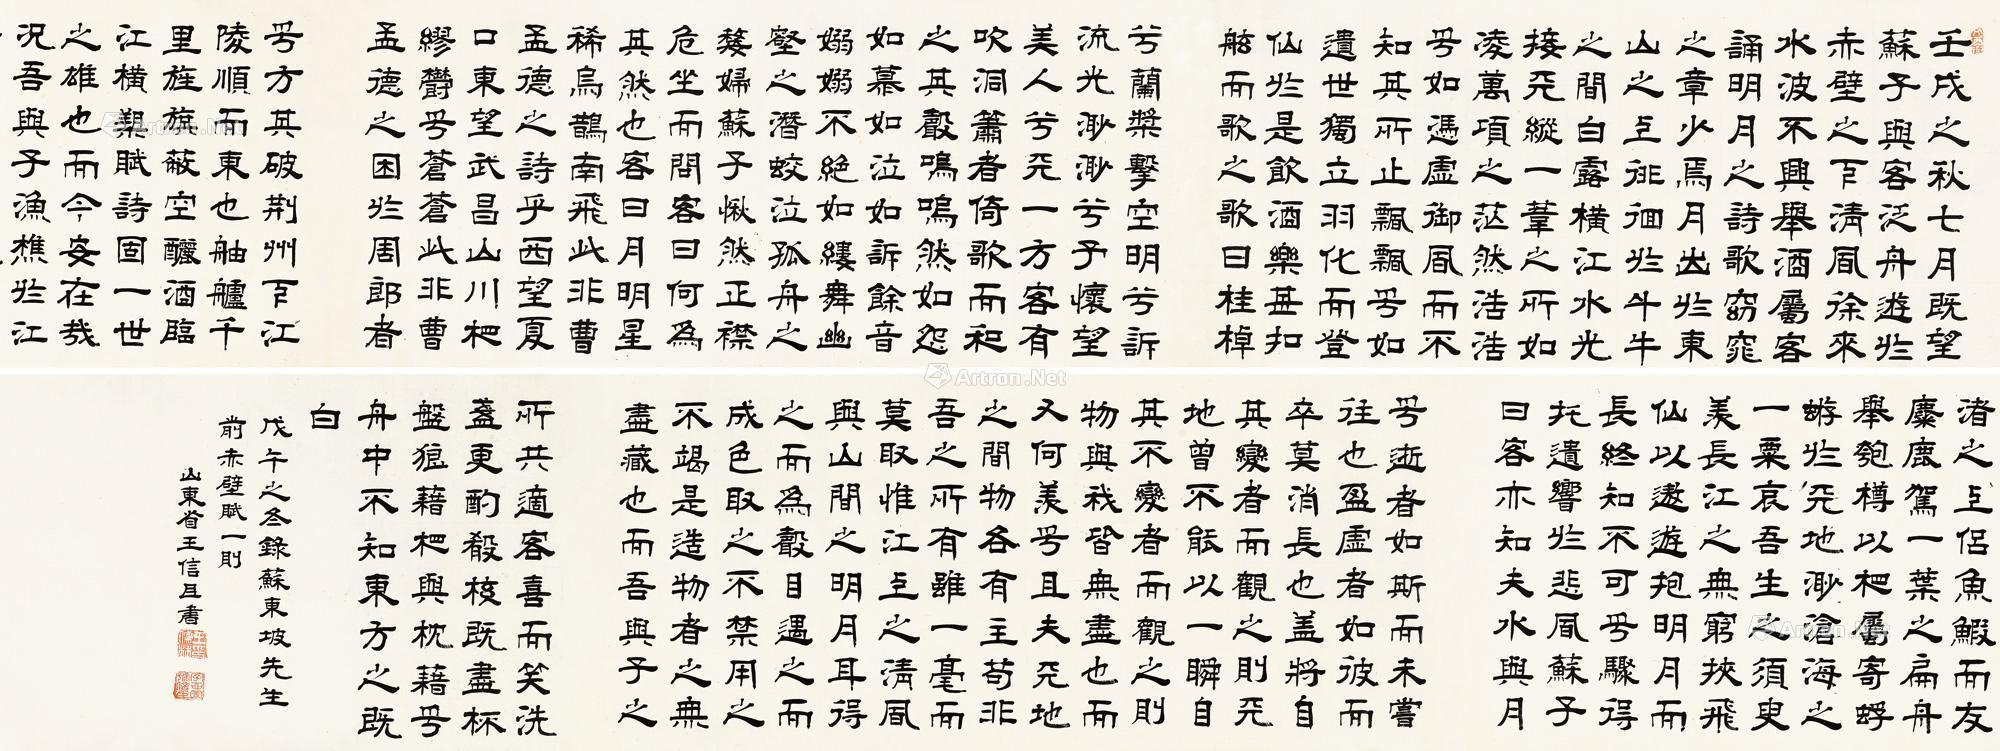 壬戌之秋七月既望
蘇子與客泛舟遊於
赤壁之下清風徐來
水波不興舉酒屬客
誦明月之詩歌窈窕
之章少焉月出於東
山之上徘徊於斗牛
之間白露橫江水光
接天縱一葦之所如
凌萬頃之茫然浩浩
乎如憑虛御風而不
知其所止飄飄乎如
遺世獨立羽化而登
仙於是飲酒樂甚扣
舷而歌之歌曰桂棹
兮蘭槳擊空明兮訴
流光渺渺兮予懷望
美人兮天一方客有
吹洞簫者倚歌而和
之其聲嗚嗚然如怨
如慕如泣如訴餘音
嫋嫋不絕如縷舞幽
壑之潛蛟泣孤舟之
嫠婦蘇子愀然正襟
危坐而問客曰何為
其然也客曰月明星
稀烏鵲南飛此非曹
孟德之詩乎西望夏
口東望武昌山川相
繆鬱乎蒼蒼此非曹
孟德之困於周郎者
乎方其破荊州下江
陵順而東也舳艫千
里旌旗蔽空釃酒臨
江橫槊賦詩固一世
之雄也而今安在哉
況吾與子漁樵於江
渚之上侶魚鰕而友
麋鹿駕一葉之扁舟
舉匏樽以相屬寄蜉
蝣於天地渺滄海之
一粟哀吾生之須臾
羨長江之無窮挾飛
仙以遨遊抱明月而
長終知不可乎驟得
托遺響於悲風蘇子
曰客亦知夫水與月
乎逝者如斯而未嘗
往也盈虛者如彼而
卒莫消長也蓋將自
其變者而觀之則天
地曾不能以一瞬自
其不變者而觀之則
物與我皆無盡也而
又何羨乎且夫天地
之間物各有主苟非
吾之所有雖一毫而
莫取惟江上之清風
與山間之明月耳得
之而為聲目遇之而
成色取之不禁用之
不竭是造物者之無
盡藏也而吾與子之
所共適客喜而笑洗
盞更酌殽核既盡杯
盤狼藉相與枕藉乎
舟中不知東方之既
白
戊午之冬錄蘇東坡先生
前赤壁賦一則
山東省王信且書
Artron.Net